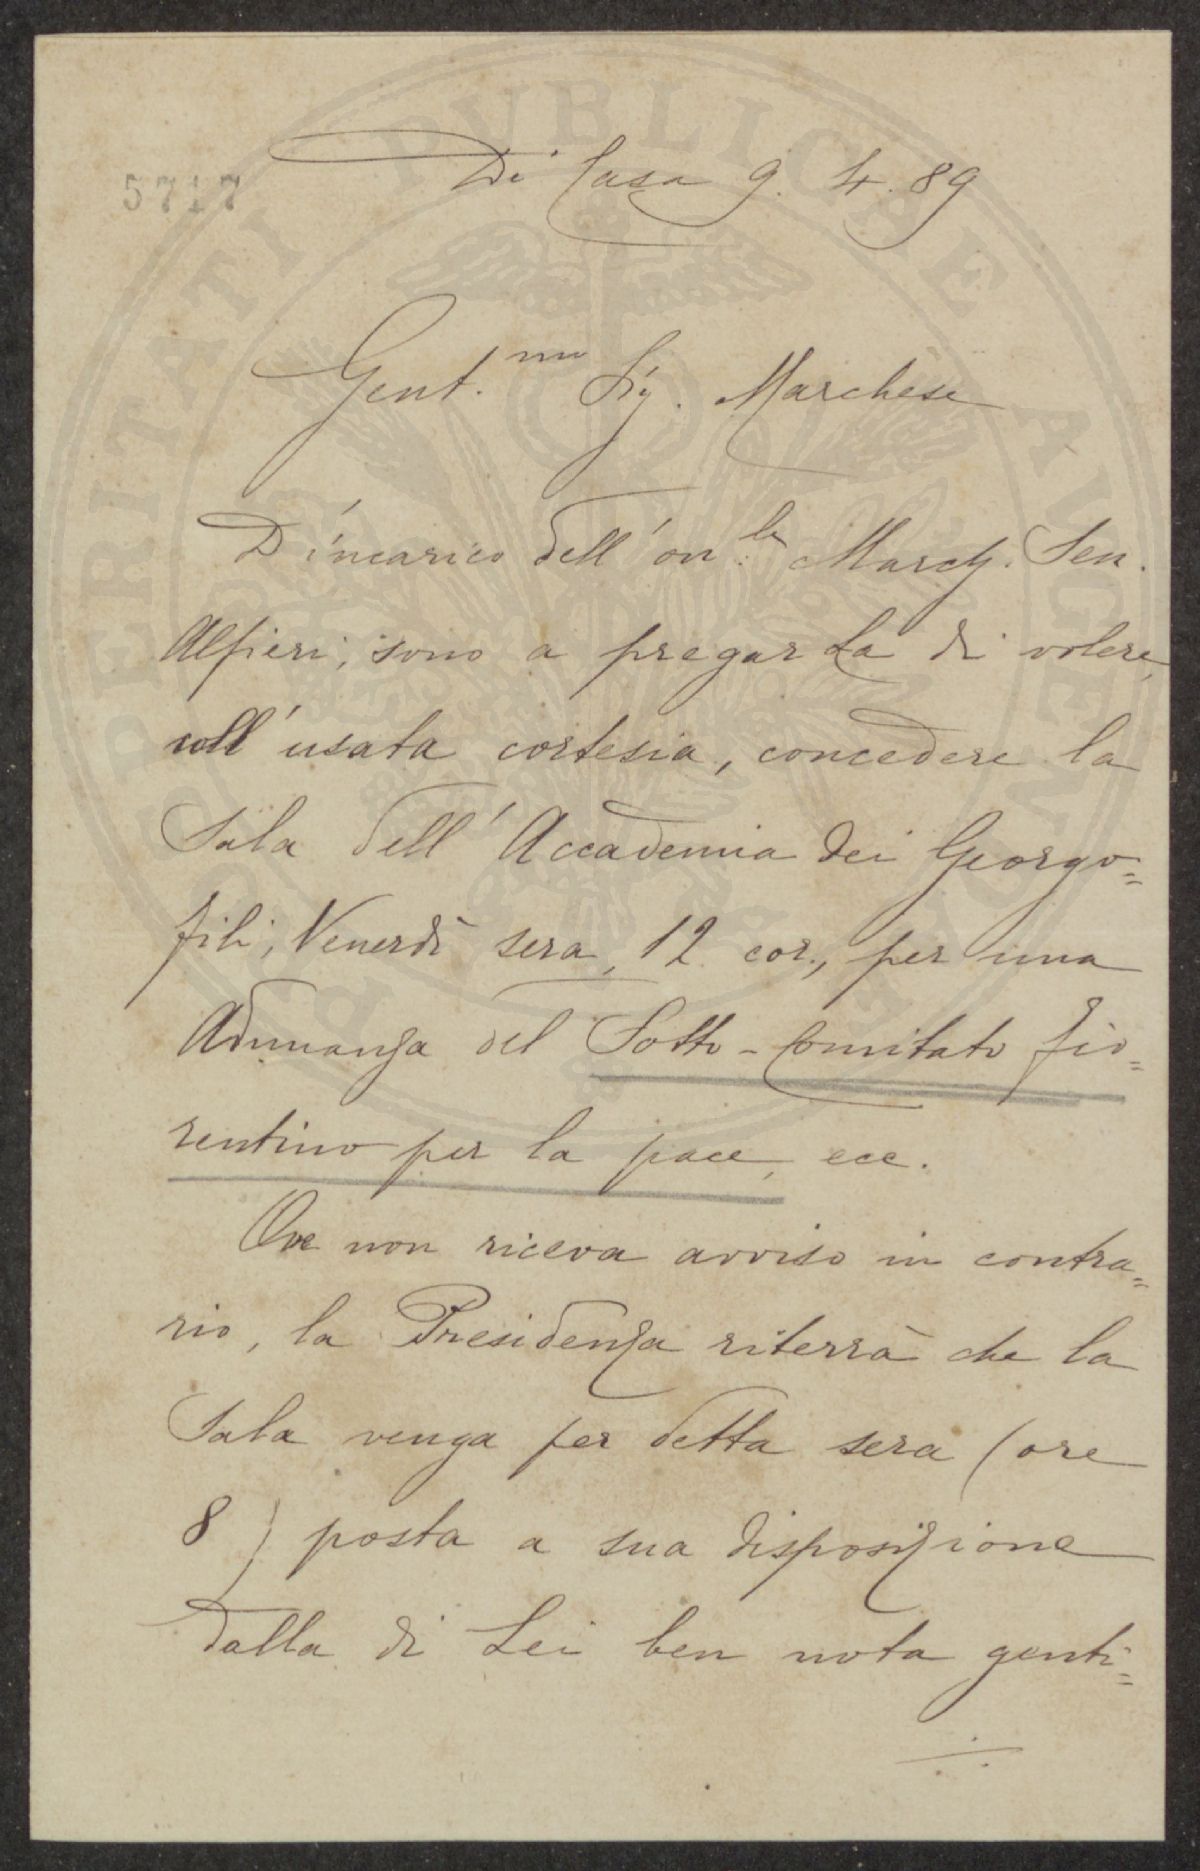 5717
Di Casa 9. 4. 89
Gent.mo Sig. Marchese
D'incarico dell'on.le March. Sen.
Alfieri, sono a pregarLa di volere,
coll'usata cortesia, concedere la
Sala dell'Accademia dei Georgo=
fili, Venerdì sera, 12 cor., per una
Adunanza del Sotto-Comitato fio=
rentino per la pace, ecc.
Ove non riceva avviso in contra=
rio, la Presidenza riterrà che la
Sala venga per detta sera (ore
8) posta a sua disposizione
dalla di Lei ben nota genti=
./.
PROSPERITATI PUBLICAE AUGENDAE